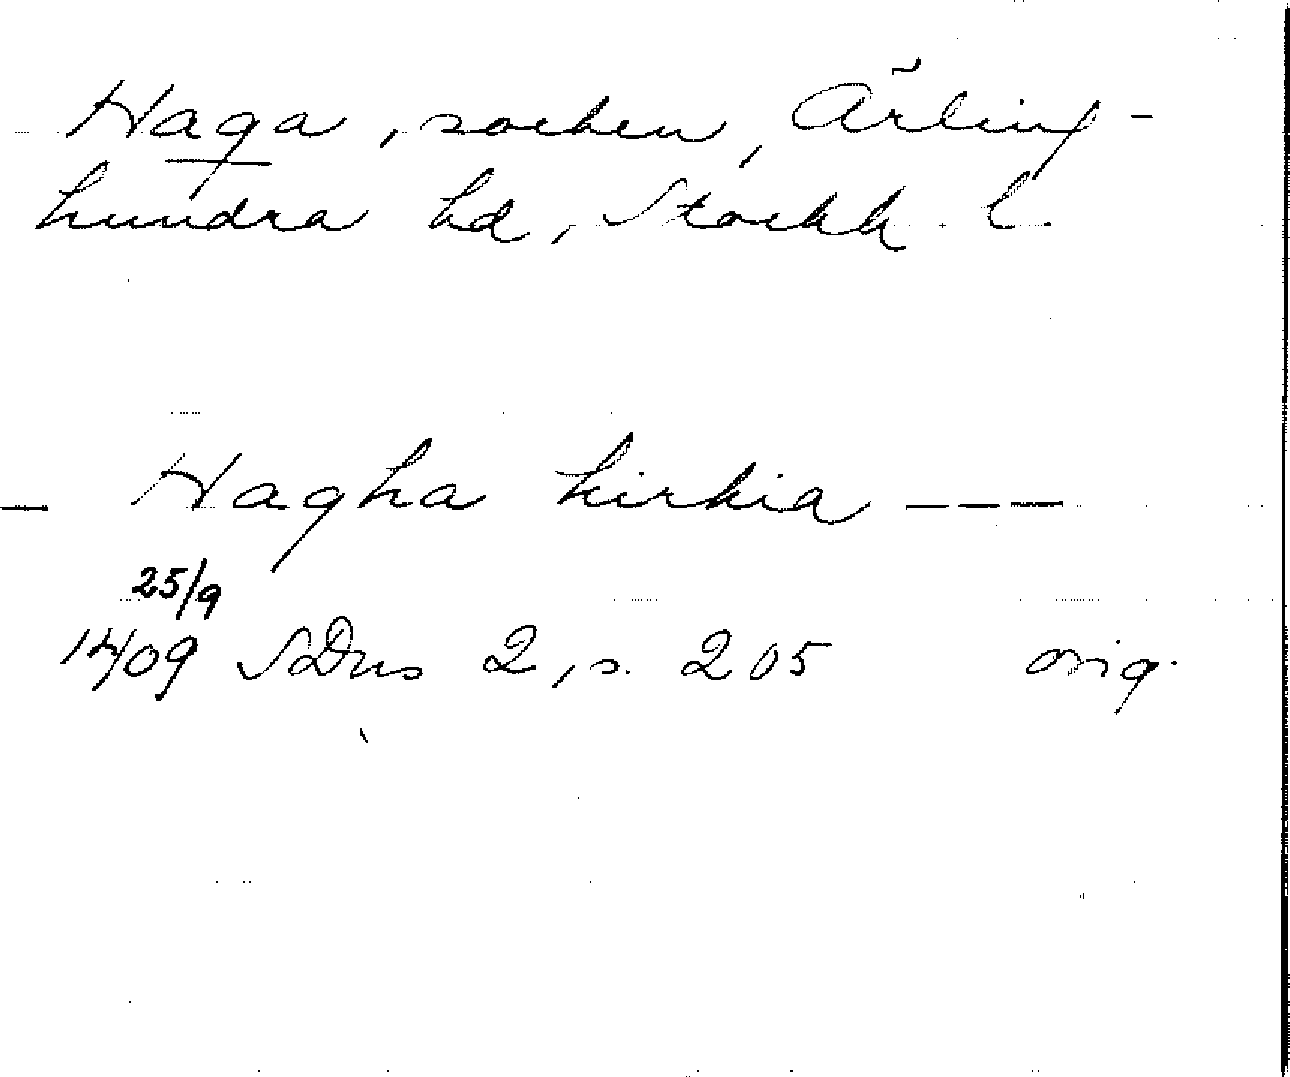 Haga, socken, Ärling-
hundra hd, Stockh. l.
— Hagha kirkia – – –
25/9
1409 SDns 2, s. 205 orig.